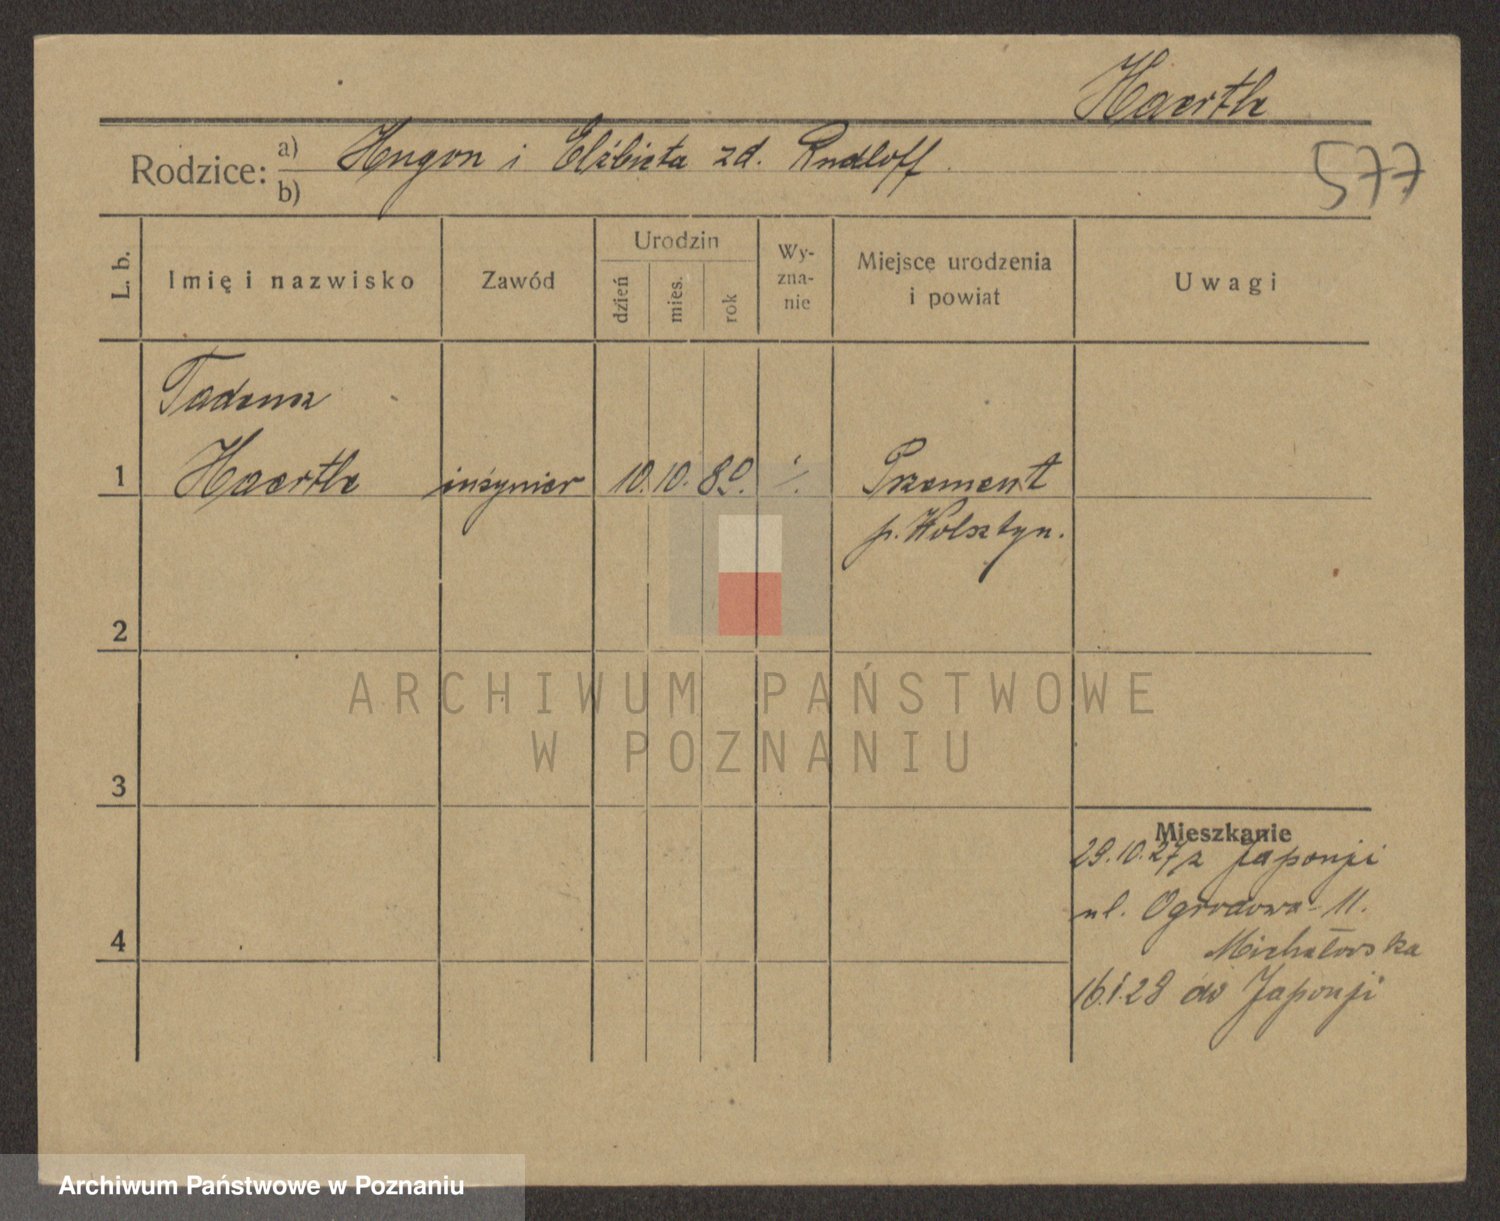 Haertle
Rodzice: a) Hugon i Elżbieta zd. Rudloff.
b)
577
L. b.
Imię i nazwisko
Zawód
Urodzin
dzień
mies.
rok
Wy-
zna-
nie
Miejsce urodzenia
i powiat
Uwagi
Tadeusz
1 Haertle inżynier 10. 10. 80. Przement
p. Wolsztyn.
2
3
4
Mieszkanie
29.10.27 z Japonji
ul. Ogrodowa 11.
Michałowska
16.1.28 do Japonji
ARCHIWUM PAŃSTWOWE
W POZNANIU
Archiwum Państwowe w Poznaniu